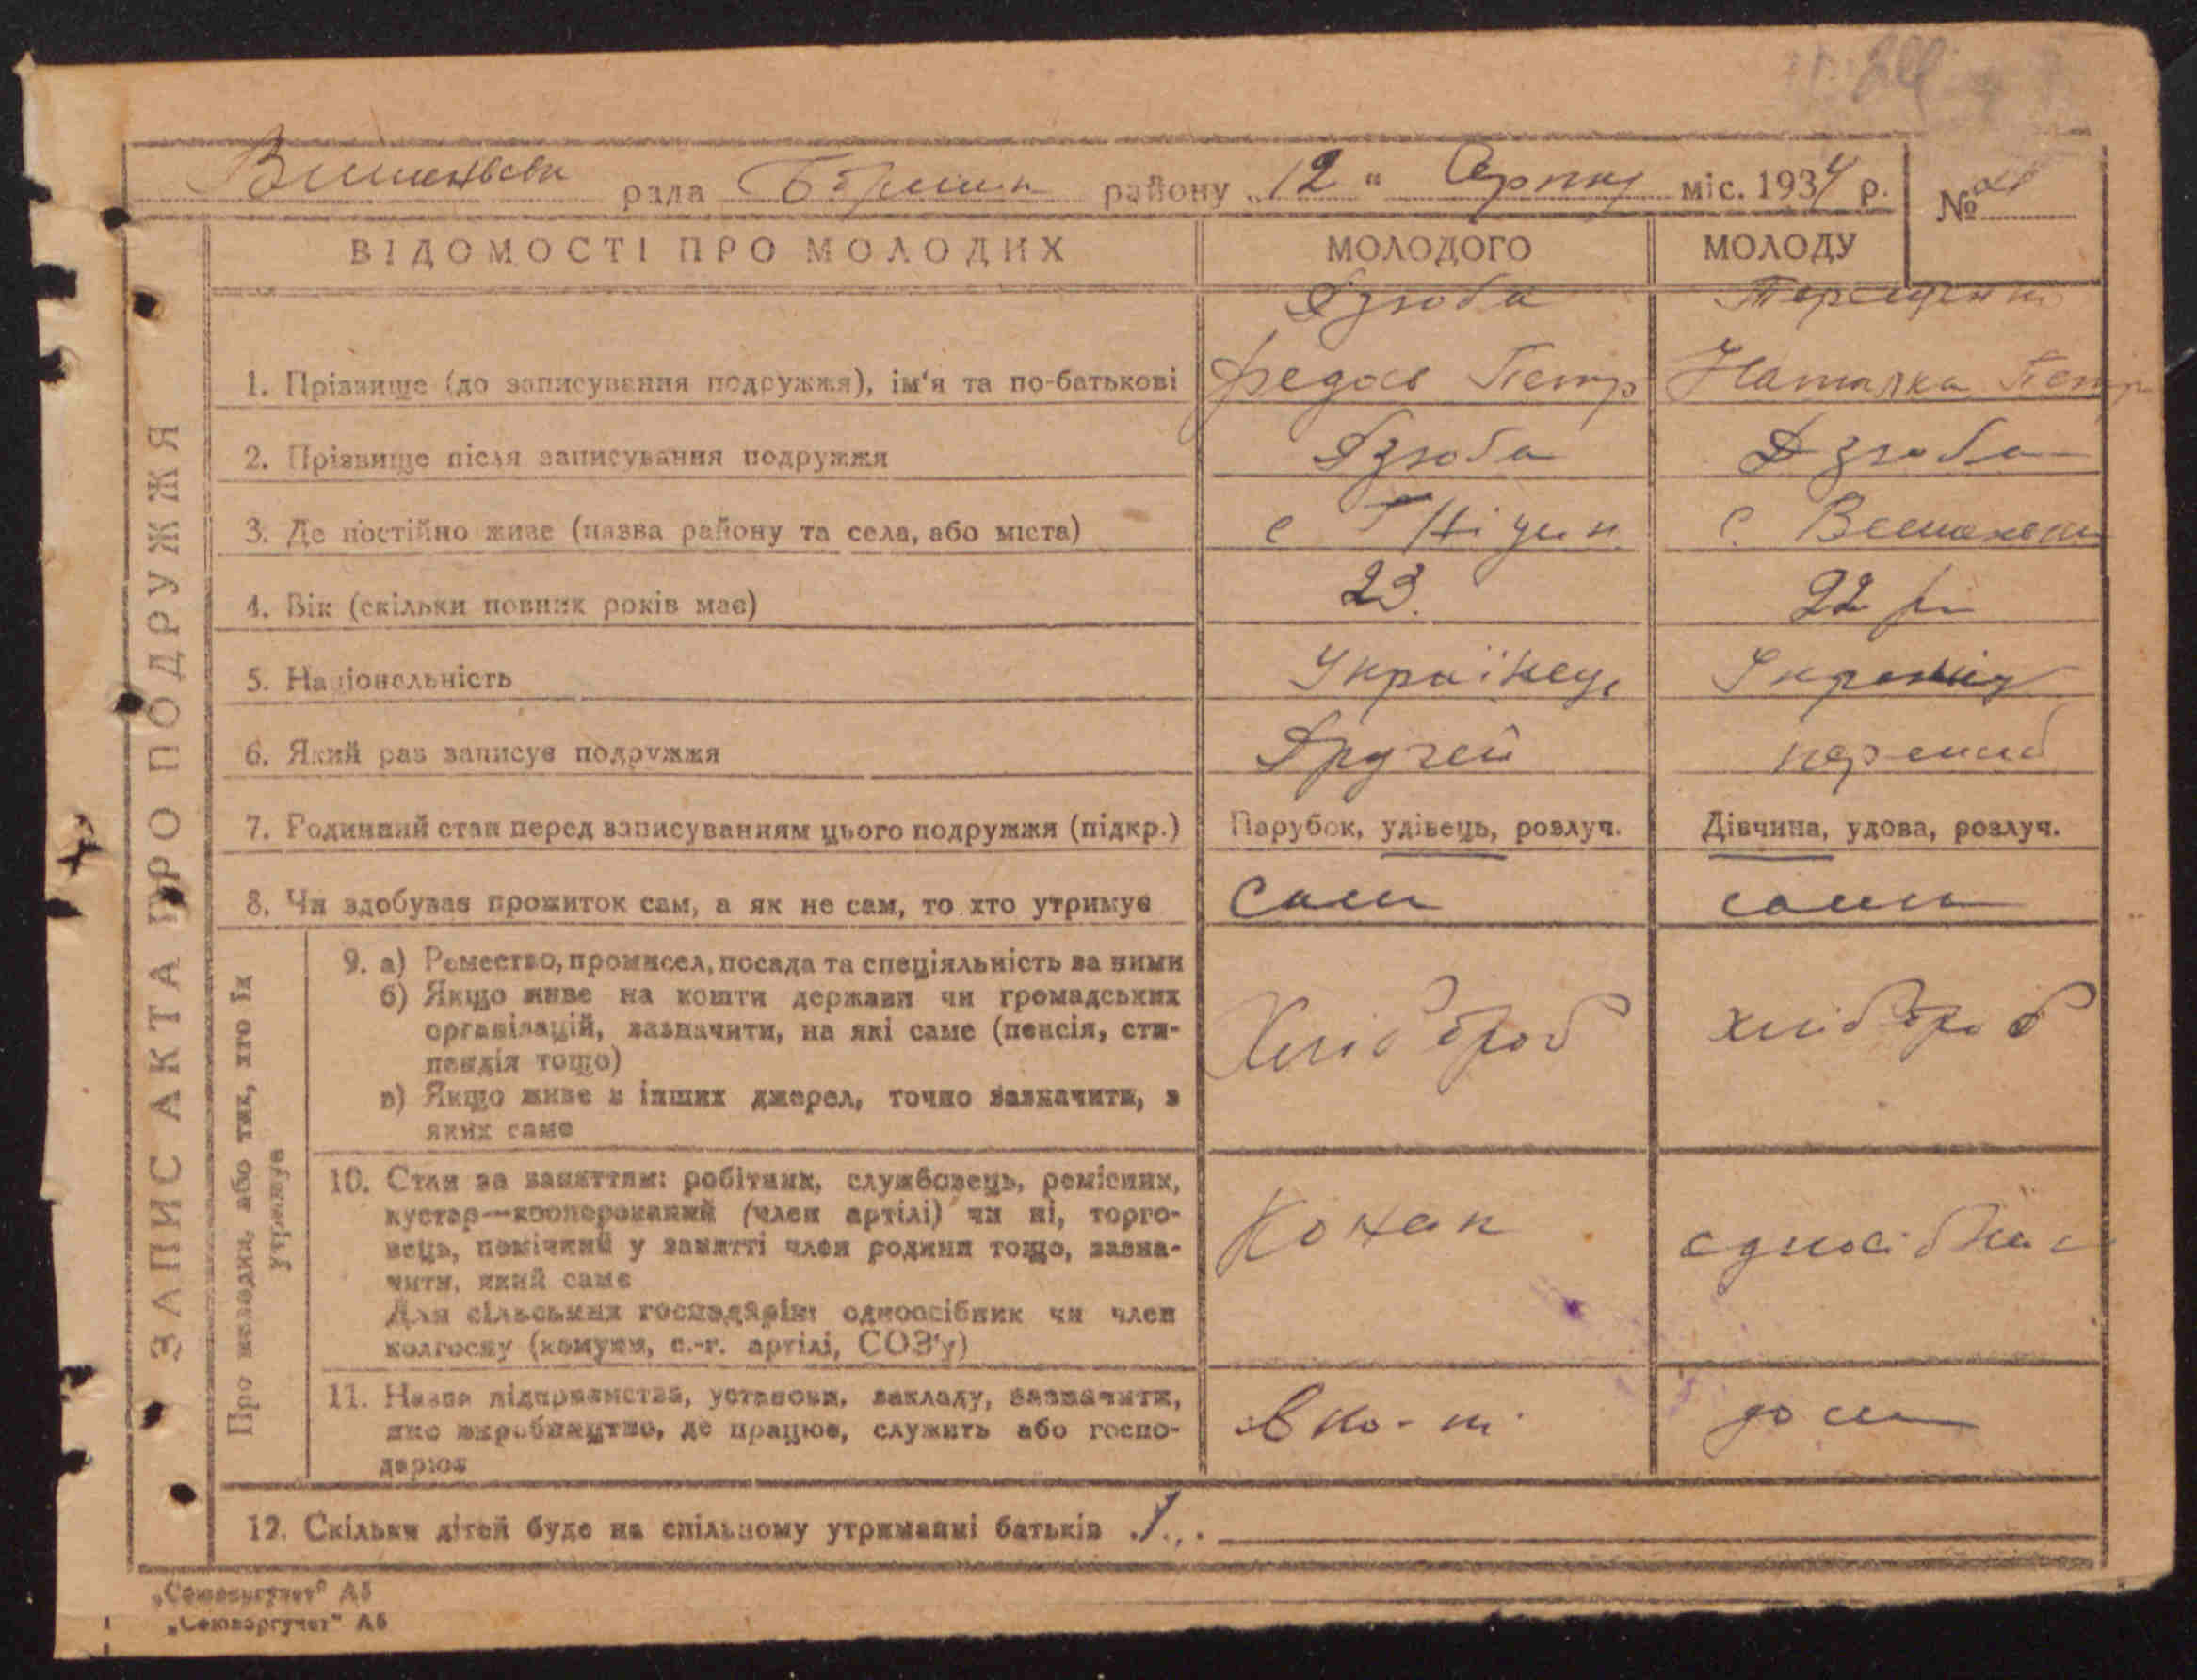 рада району „12“ Серпня міс. 1934 р. №
ЗАПИС АКТА ПРО ПОДРУЖЖЯ
ВІДОМОСТІ ПРО МОЛОДИХ МОЛОДОГО МОЛОДУ
Дзюба Терещенко
1. Прізвище (до записування подружжя), ім'я та по-батькові Федось Петр Наталка Петр
2. Прізвище після записування подружжя Дзюба Дзюба
3. Де постійно живе (назва району та села, або міста) с Гнідин с.
4. Вік (скільки повних років має) 23. 22
5. Національність Українець
6. Який раз записує подружжя Другей перший
7. Родинний стан перед записуванням цього подружжя (підкр.) Парубок, удівець, розлуч. Дівчина, удова, розлуч.
8. Чи здобуває прожиток сам, а як не сам, то хто утримує Сам сама
Про молодих, або тих, хто їх утримує
9. а) Ремество, промисел, посада та спеціяльність за ними
б) Якщо живе на кошти держави чи громадських
організацій, зазначити, на які саме (пенсія, сти-
пендія тощо)
Хлібороб хлібороб
в) Якщо живе з інших джерел, точно зазначити, з
яких саме
10. Стан за заняттям: робітник, службовець, ремісник,
кустар—кооперований (член артілі) чи ні, торго-
вець, помічний у занятті член родини тощо, зазна-
чити, який саме
Для сільських господарів: одноосібник чи член
колгоспу (комуни, с.-г. артілі, СОЗ'у)
11. Назва підприємства, установи, закладу, зазначити,
яке виробництво, де працює, служить або госпо-
дарює
12. Скільки дітей буде на спільному утриманні батьків 1
„Союзоргучет“ А5
„Союзоргучет“ А5